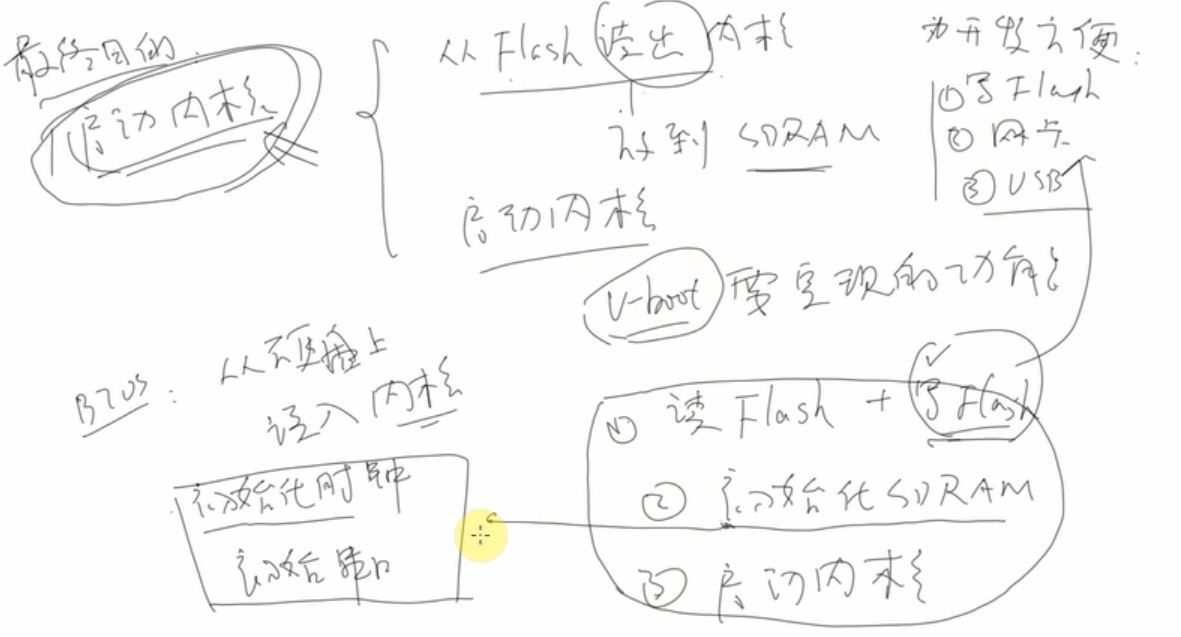 最终目的:
启动内核
从Flash读出内核
放到 SDRAM
启动内核
为开发方便:
①写Flash
②网卡
③USB
U-boot 要实现的功能
BIOS: 从硬盘上
读入内核
初始化时钟
初始串口
① 读 Flash + 写Flash
② 初始化SDRAM
③ 启动内核